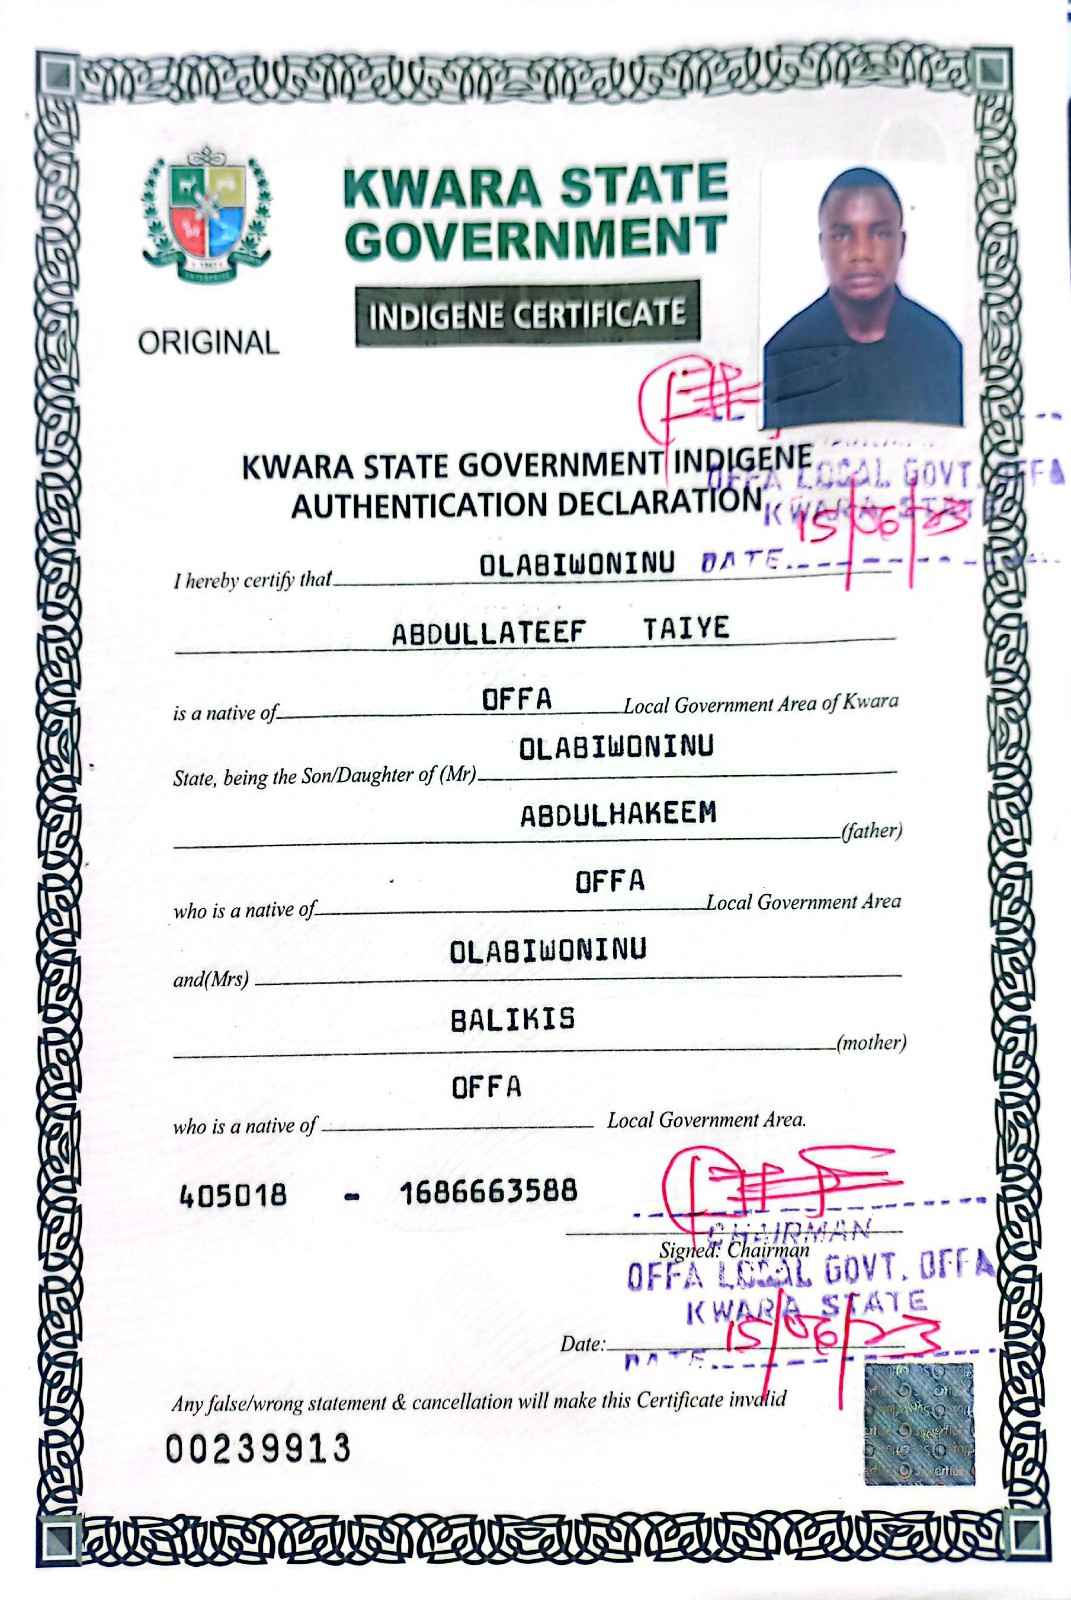 KWARA STATE
GOVERNMENT
INDIGENE CERTIFICATE
ORIGINAL
KWARA STATE GOVERNMENT INDIGENE
AUTHENTICATION DECLARATION
OFFA LOCAL GOVT. OFFA
KWARA STATE
15/06/23
DATE
I hereby certify that OLABIWONINU
ABDULLATEEF TAIYE
is a native of OFFA Local Government Area of Kwara
State, being the Son/Daughter of (Mr) OLABIWONINU
ABDULHAKEEM (father)
who is a native of OFFA Local Government Area
and(Mrs) OLABIWONINU
BALIKIS (mother)
who is a native of OFFA Local Government Area.
405018 - 1686663588
CHAIRMAN
Signed: Chairman
OFFA LOCAL GOVT. OFFA
KWARA STATE
Date: 15/06/23
DATE
Any false/wrong statement & cancellation will make this Certificate invalid
00239913